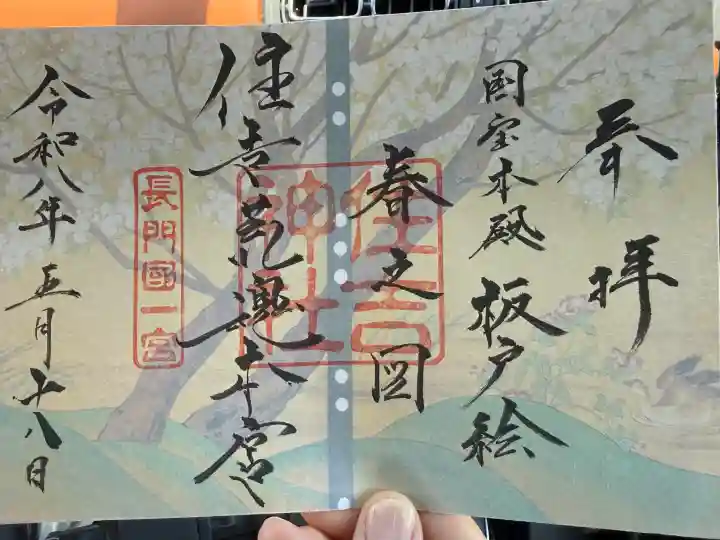 奉拝
国宝本殿 板戸絵
春之図
住吉神社
住吉荒魂本宮
長門國一宮
令和八年五月十八日